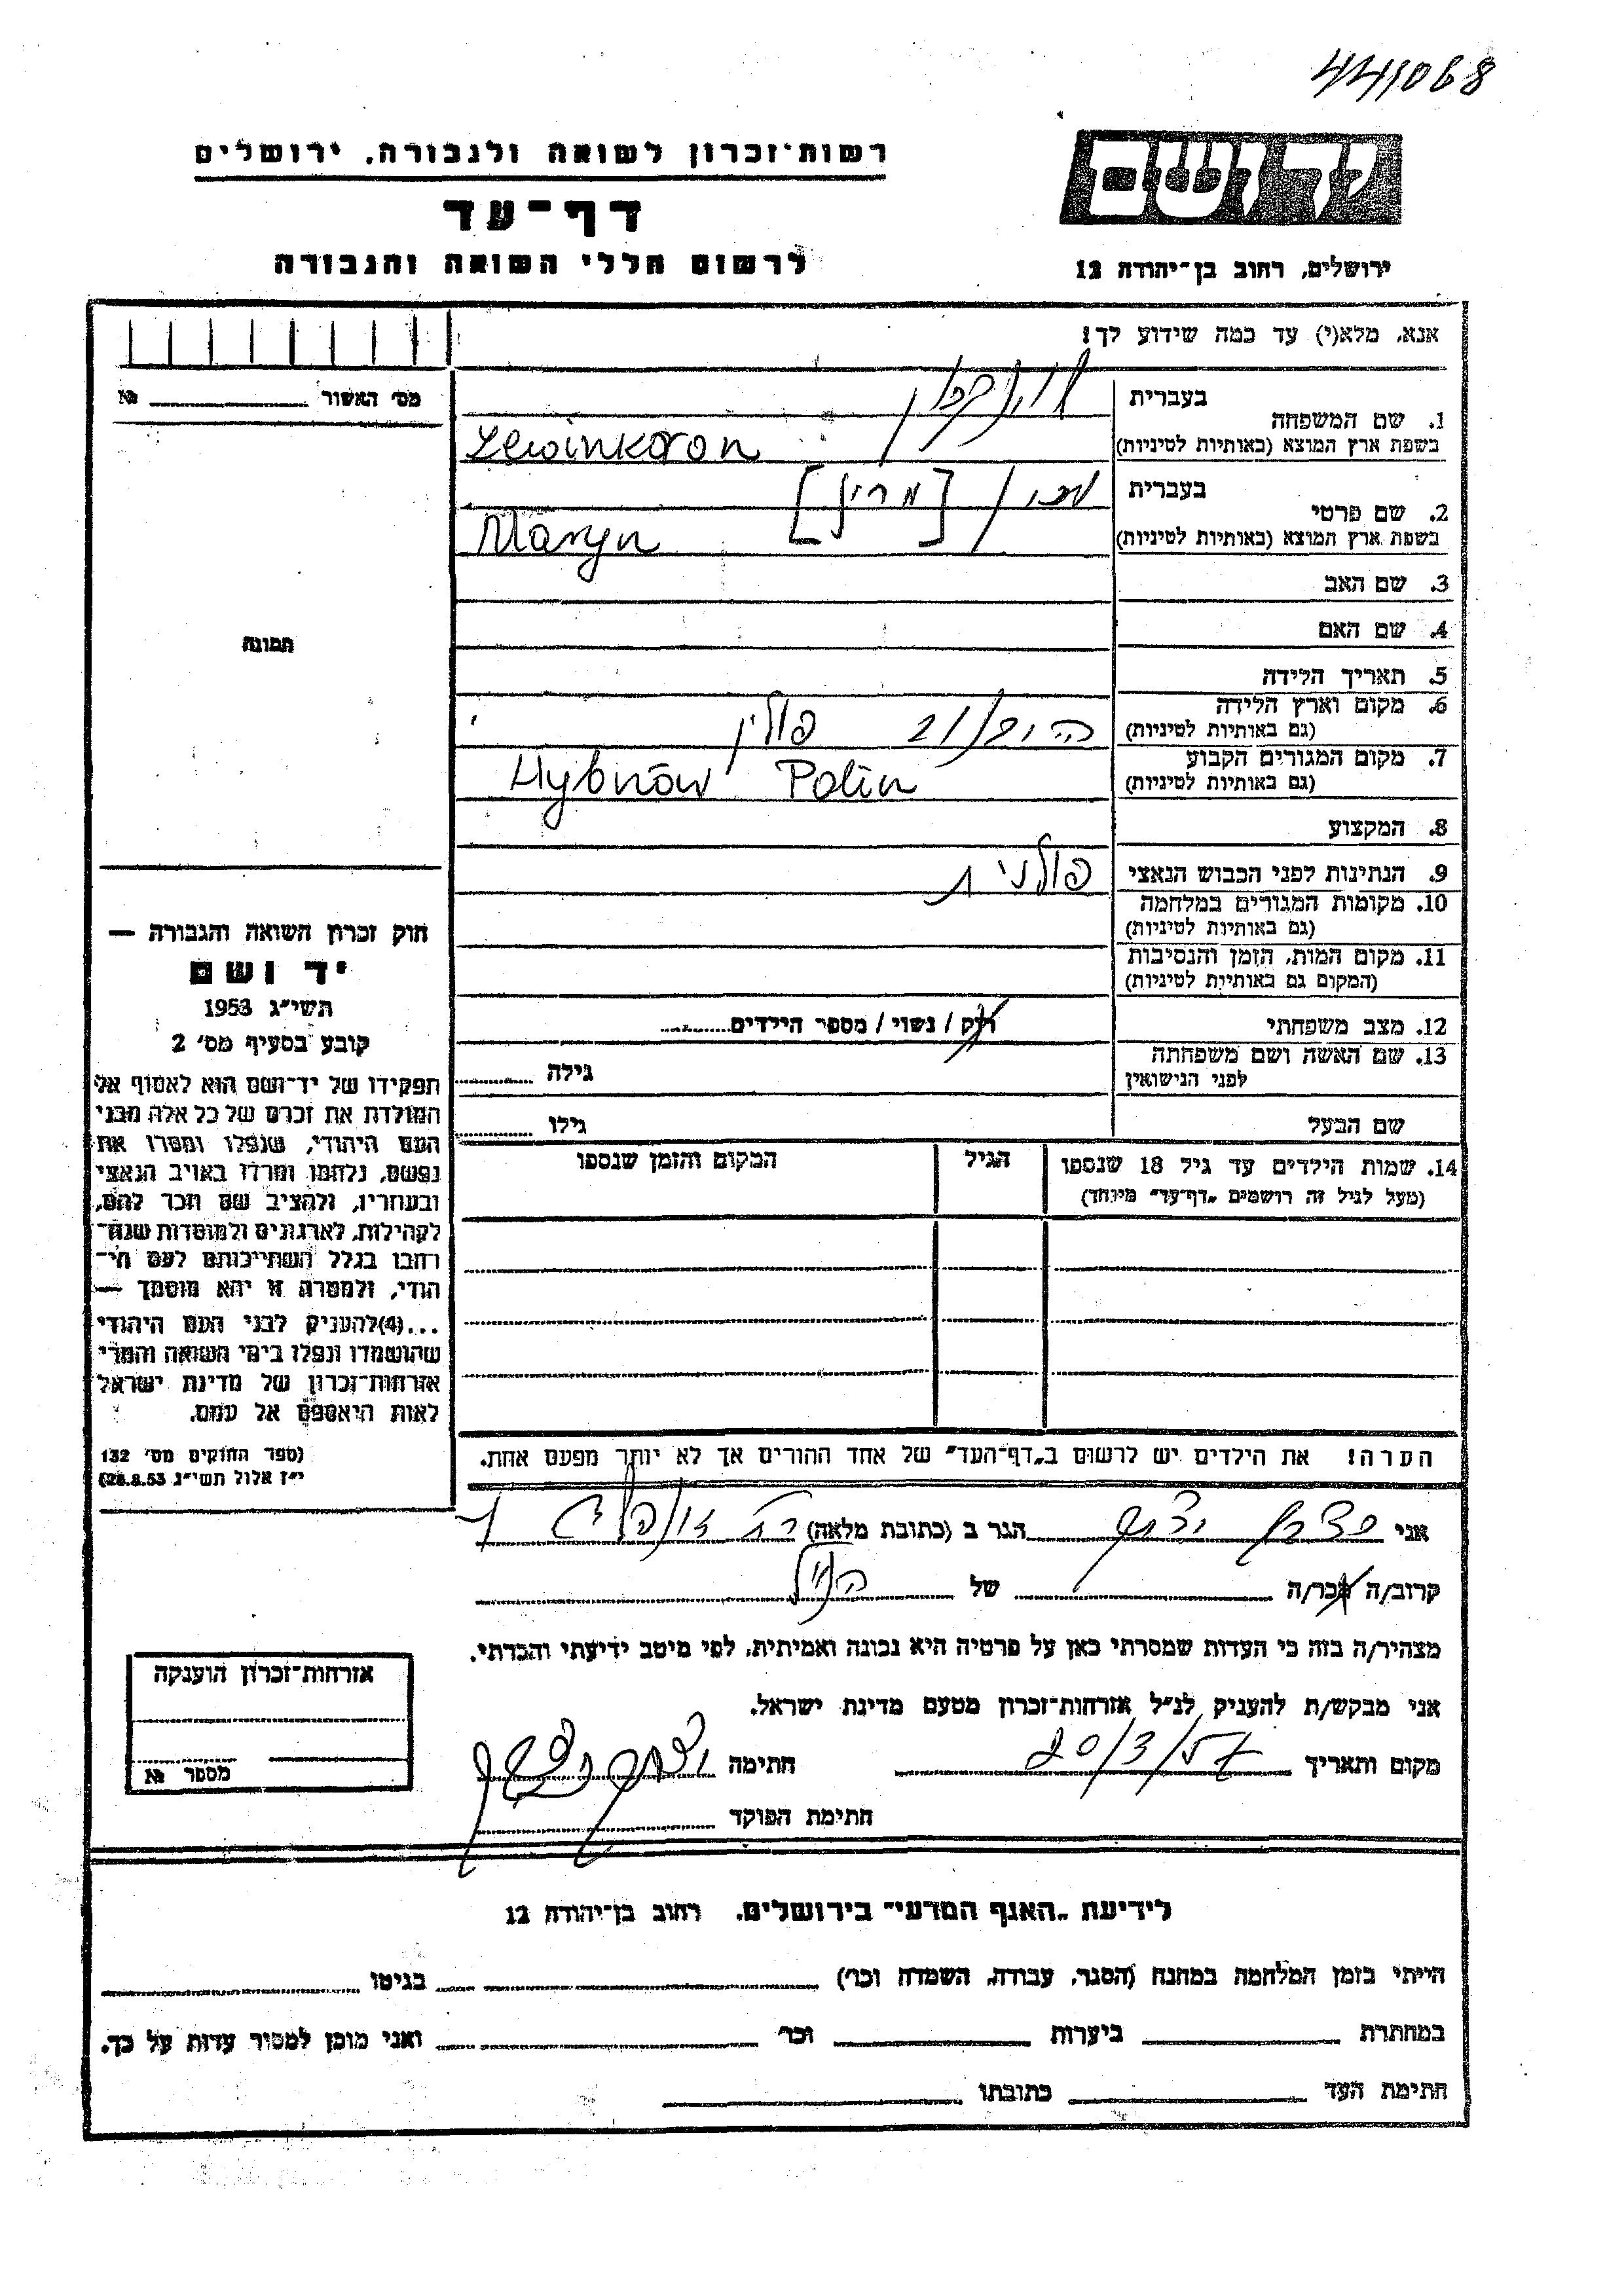 441068
ידושם
רשות־זכרון לשואה ולגבורה, ירושלים
דף־עד
לרשום חללי השואה והגבורה
ירושלים, רחוב בן־יהודה 12
אנא, מלא(י) עד כמה שידוע לך!
מס׳ האשור № 
בעברית
1. שם המשפחה
בשפת ארץ המוצא (באותיות לטיניות) Lewinkoron
בעברית [מרין]
2. שם פרטי
בשפת ארץ המוצא (באותיות לטיניות) Maryn
3. שם האב
4. שם האם
תמונה
5. תאריך הלידה
6. מקום וארץ הלידה פולין
(גם באותיות לטיניות)
7. מקום המגורים הקבוע Hybnów Polin
(גם באותיות לטיניות)
8. המקצוע
9. הנתינות לפני הכבוש הנאצי פולנית
10. מקומות המגורים במלחמה
(גם באותיות לטיניות)
11. מקום המות, הזמן והנסיבות
(המקום גם באותיות לטיניות)
12. מצב משפחתי רוק / נשוי / מספר הילדים
13. שם האשה ושם משפחתה גילה
לפני הנישואין
שם הבעל גילו
14. שמות הילדים עד גיל 18 שנספו הגיל המקום והזמן שנספו
(מעל לגיל זה רושמים „דף־עד״ מיוחד)
חוק זכרון השואה והגבורה —
יד ושם
תשי״ג 1953
קובע בסעיף מס׳ 2
תפקידו של יד־ושם הוא לאסוף אל
המולדת את זכרם של כל אלה מבני
העם היהודי, שנפלו ומסרו את
נפשם, נלחמו ומרדו באויב הנאצי
ובעוזריו, ולהציב שם וזכר להם,
לקהילות, לארגונים ולמוסדות שנח־
רבו בגלל השתייכותם לעם הי־
הודי, ולמטרה זו יהא מוסמך —
...(4)להעניק לבני העם היהודי
שהושמדו ונפלו בימי השואה והמרי
אזרחות־זכרון של מדינת ישראל
לאות היאספם אל עמם.
(ספר החוקים מס׳ 132
י״ז אלול תשי״ג 28.8.53)
הערה! את הילדים יש לרשום ב„דף־העד״ של אחד ההורים אך לא יותר מפעם אחת.
אני הגר ב (כתובת מלאה)
קרוב/ה מכר/ה של הנ״ל
מצהיר/ה בזה כי העדות שמסרתי כאן על פרטיה היא נכונה ואמיתית, לפי מיטב ידיעתי והכרתי.
אני מבקש/ת להעניק לנ״ל אזרחות־זכרון מטעם מדינת ישראל.
מקום ותאריך 20/3/57 חתימה
חתימת הפוקד
אזרחות־זכרון הוענקה
מספר №
לידיעת „האגף המדעי״ בירושלים, רחוב בן־יהודה 12
הייתי בזמן המלחמה במחנה (הסגר, עבודה, השמדה וכר׳) בגיטו
במחתרת ביערות וכר׳ ואני מוכן למסור עדות על כך.
חתימת העד כתובתו